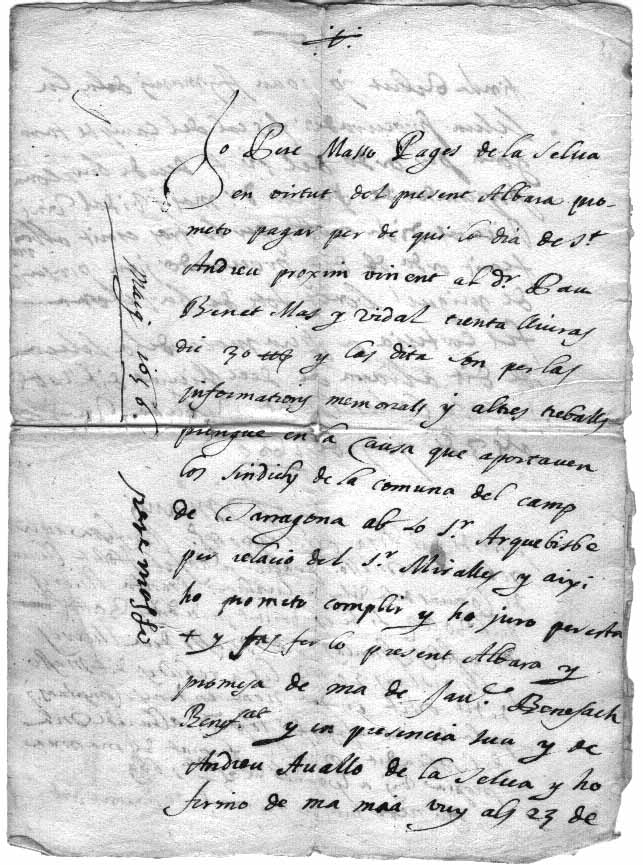 Jo Pere Masso Pages de la Selua
en virtut del present Albara pro-
meto pagar per de qui lo dia de St
Andreu proxim vinent al dr Pau
Benet Mas y Vidal trenta lliuras
dic 30 y las dita son per las
informations memorials y altres treballs
prengue en la Causa que aportauen
los sindichs de la comuna del camp
de Tarragona ab lo Sr Arquebisbe
per relacio del Sr Miralles y aixi
ho prometo complir y ho juro per esta
+ y fas fer lo present Albara y
promesa de ma de Jau.e Benesach
y en presencia sua y de
Andreu Auallo de la Selua y ho
firmo de ma maá vuy als 23 de
Maig 1636.
pere masso